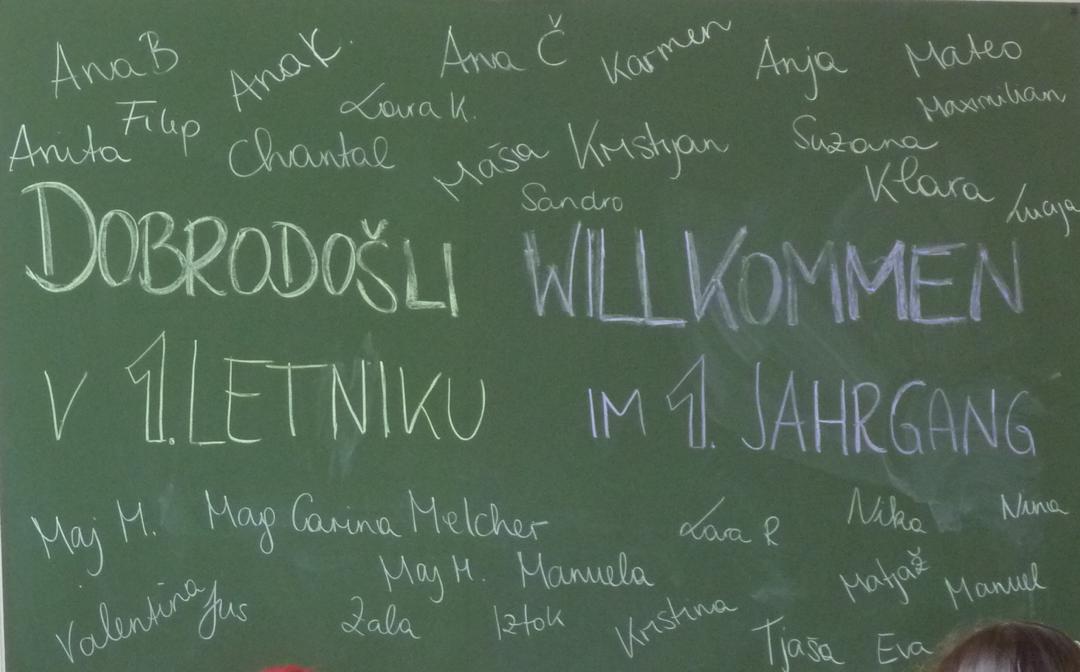 Ana B
Ana K.
Ana Č
Karmen
Anja
Mateo
Filip
Lara K.
Maximilian
Anita
Chantal
Maša
Kristjan
Suzana
Sandro
Klara
Lucija
DOBRODOŠLI
WILLKOMMEN
V 1. LETNIKU
IM 1. JAHRGANG
Maj M.
Mag Carina Melcher
Lara R
Nika
Nuna
Maj H.
Manuela
Matjaž
Manuel
Valentina
Jus
Zala
Iztok
Kristina
Tjaša
Eva